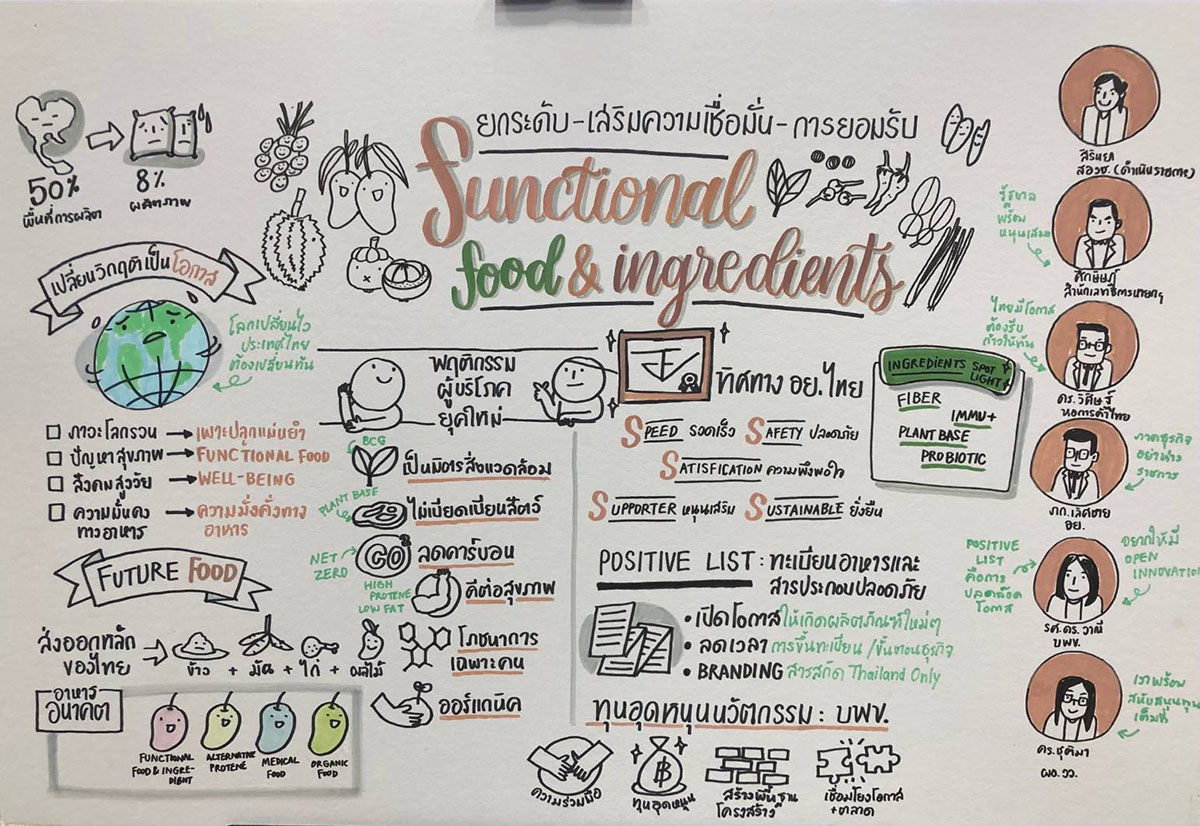 ยกระดับ-เสริมความเชื่อมั่น-การยอมรับ
Functional
food & ingredients
50%
พื้นที่การผลิต
8%
ผลิตภาพ
เปลี่ยนวิกฤติเป็นโอกาส
โลกเปลี่ยนไว
ประเทศไทย
ต้องเปลี่ยนทัน
ภาวะโลกรวน → เพาะปลูกแม่นยำ
ปัญหาสุขภาพ → FUNCTIONAL FOOD
สังคมสูงวัย → WELL-BEING
ความมั่นคง
ทางอาหาร → ความมั่งคั่งทาง
อาหาร
FUTURE FOOD
ส่งออกหลัก
ของไทย
ข้าว + มัน + ไก่ + ผลไม้
อาหาร
อนาคต
FUNCTIONAL
FOOD & INGRE-
DIENT
ALTERNATIVE
PROTENE
MEDICAL
FOOD
ORGANIC
FOOD
พฤติกรรม
ผู้บริโภค
ยุคใหม่
BCG
เป็นมิตรสิ่งแวดล้อม
PLANT BASE
ไม่เบียดเบียนสัตว์
NET
ZERO
ลดคาร์บอน
HIGH
PROTENE
LOW FAT
ดีต่อสุขภาพ
โภชนาการ
เฉพาะคน
ออร์แกนิค
ทิศทาง อย.ไทย
SPEED รวดเร็ว SAFETY ปลอดภัย
SATISFICATION ความพึงพอใจ
SUPPORTER หนุนเสริม SUSTAINABLE ยั่งยืน
POSITIVE LIST : ทะเบียนอาหารและ
สารประกอบปลอดภัย
• เปิดโอกาสให้เกิดผลิตภัณฑ์ใหม่ๆ
• ลดเวลา การขึ้นทะเบียน /ขั้นตอนธุรกิจ
• BRANDING สารสกัด Thailand Only
ทุนอุดหนุนนวัตกรรม : บพข.
ความร่วมมือ
ทุนอุดหนุน
สร้างพื้นฐาน
โครงสร้าง
เชื่อมโยงโอกาส
+ตลาด
INGREDIENTS SPOT
LIGHT
FIBER
IMMU+
PLANT BASE
PROBIOTIC
สิรินยา
สอวช. (ดำเนินรายการ)
รัฐบาล
พร้อม
หนุนเสริม
ศักษิษฏ์
สำนักเลขาธิการนายกฯ
ไทยมีโอกาส
ต้องรีบ
ก้าวให้ทัน
ดร.วิศิษฐ์
หอการค้าไทย
ภาคธุรกิจ
อย่าห่าง
ราชการ
ภก.เลิศชาย
อย.
POSITIVE
LIST
คือการ
ปลดล็อค
โอกาส
อยากให้มี
OPEN
INNOVATION
รศ.ดร.วาณี
บพข.
เราพร้อม
สนับสนุนทุน
เต็มที่
ดร.ชุติมา
ผอ.วว.